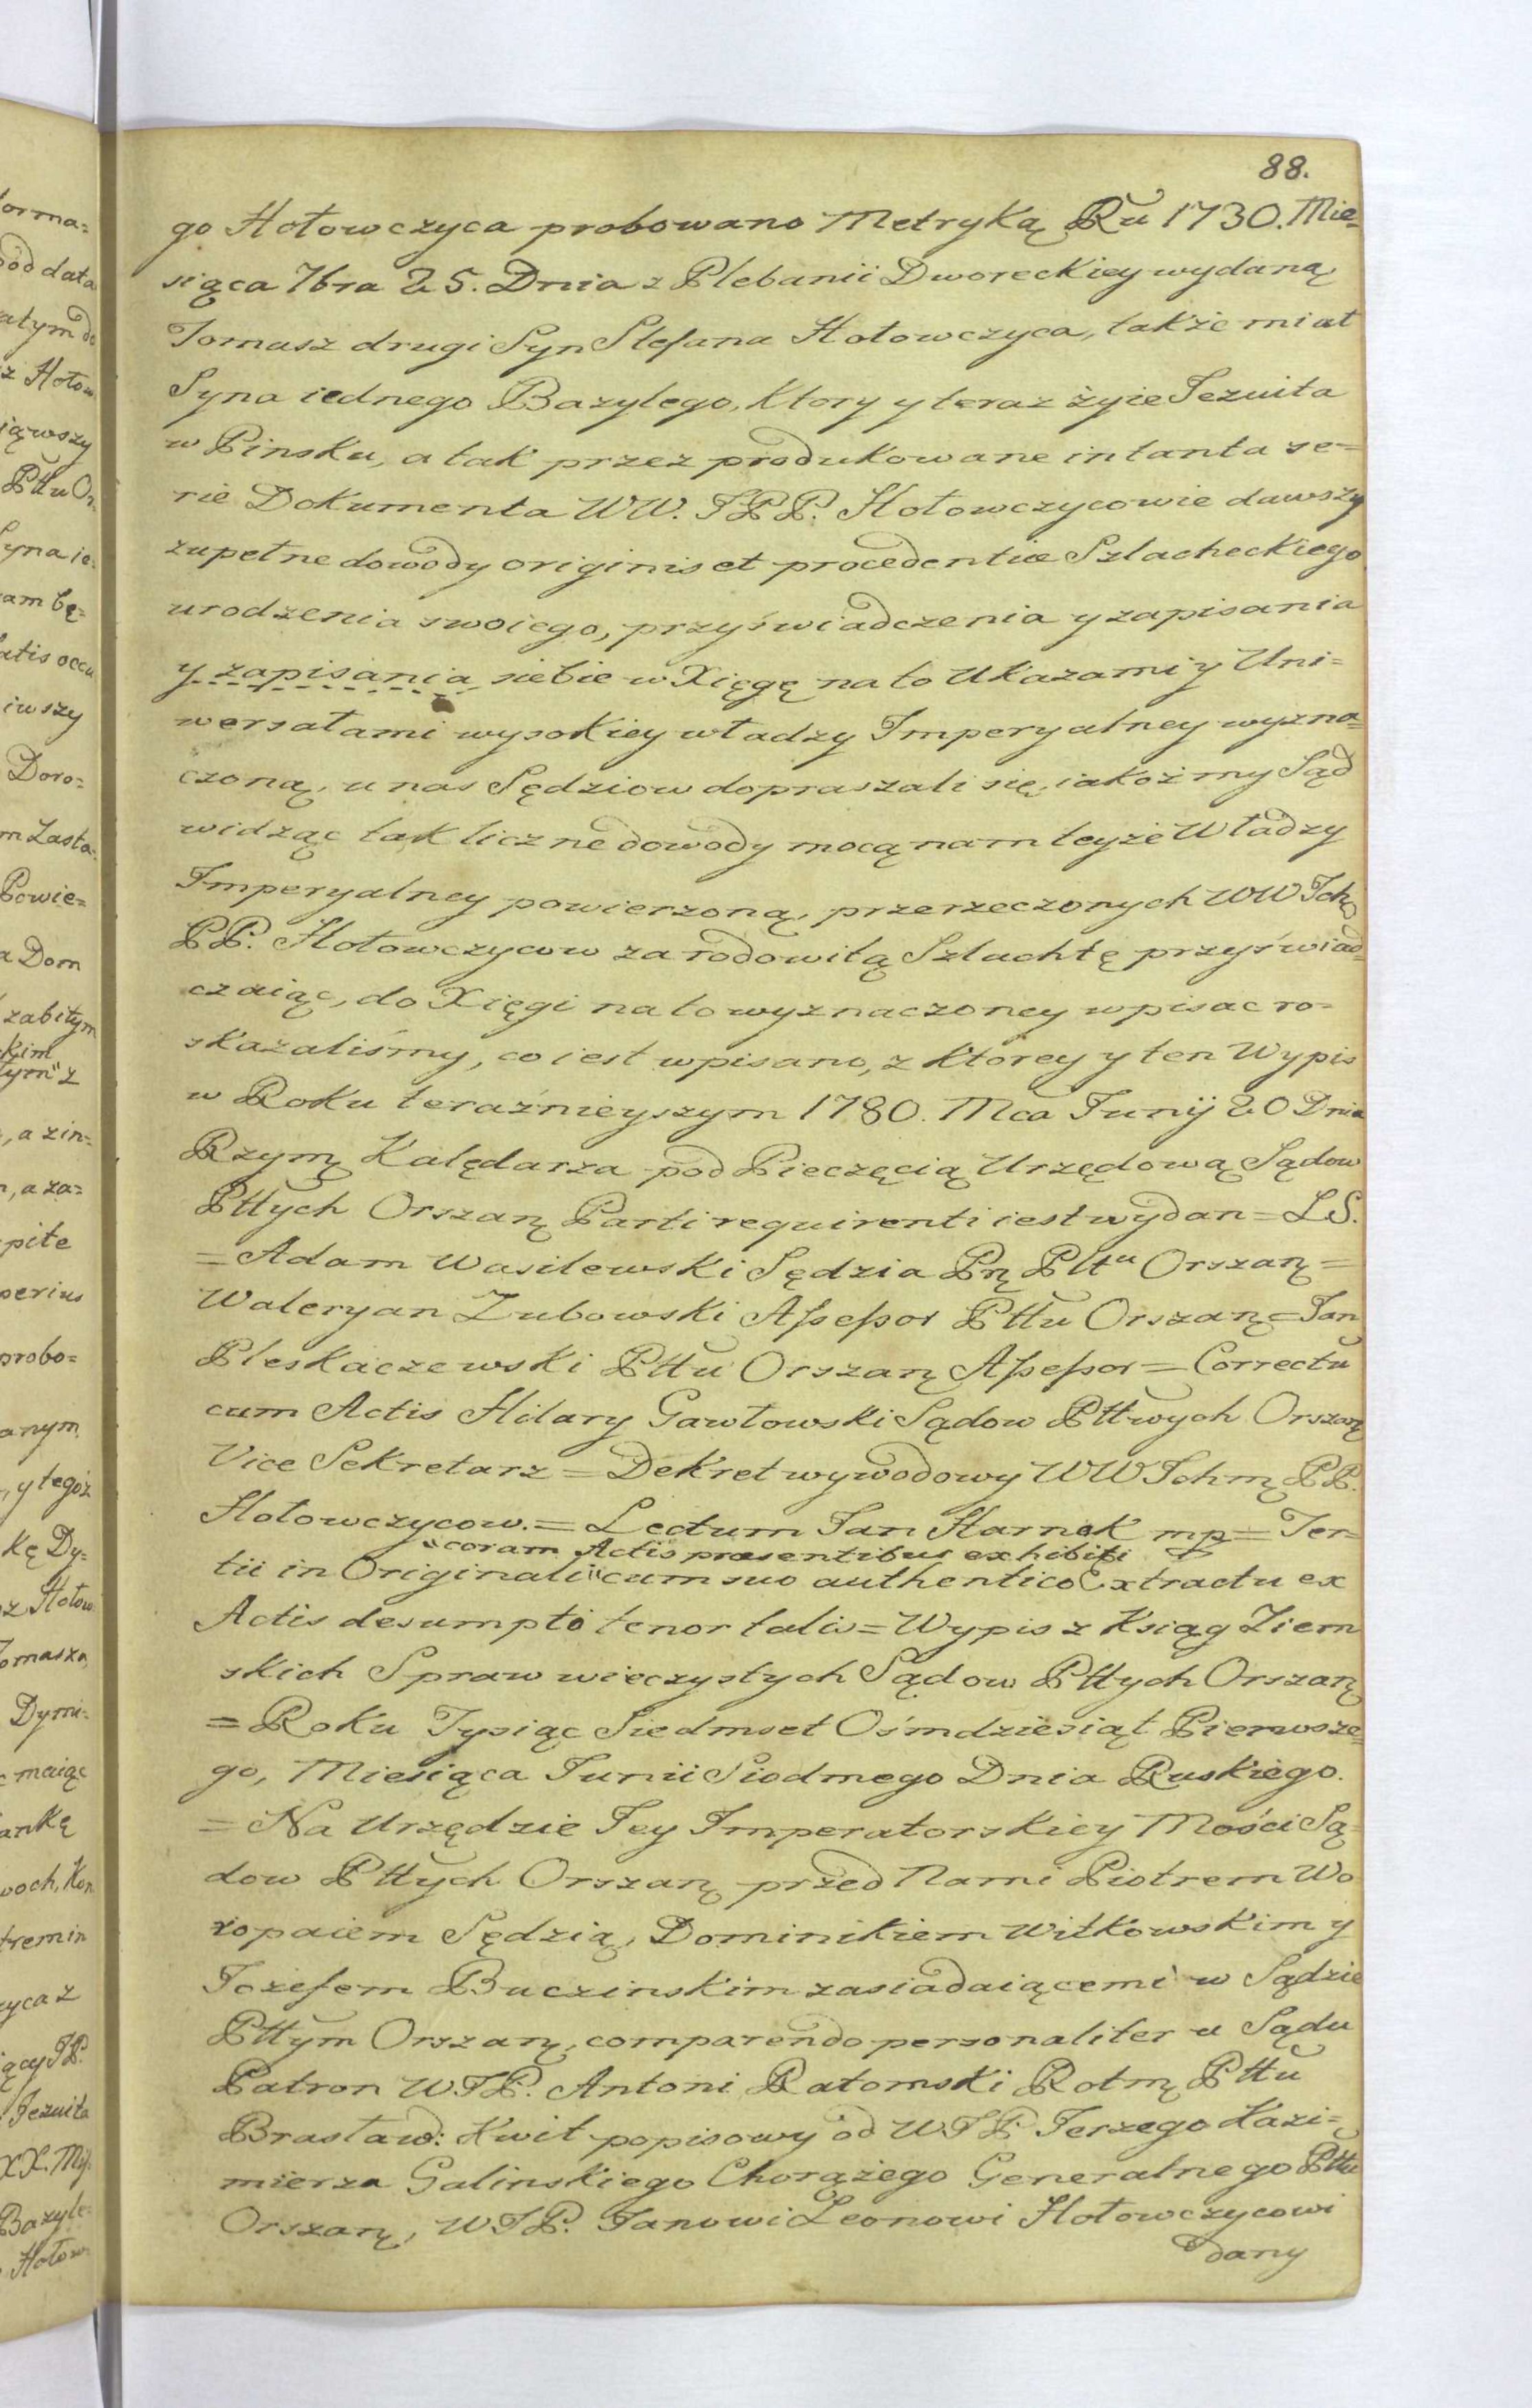 88.
go Hołowczyca probowano Metryką Ru 1730. Mie=
siąca 7bra 25. Dnia z Plebanii Dworeckiey wydaną
Tomasz drugi Syn Stefana Hołowczyca, także miał
Syna iednego Bazylego, Ktory y teraz żyie Jezuita
w Pinsku, a tak przez produkowane in tanta se=
rie Dokumenta WW. JPP. Hołowczycowie dawszy
zupełne dowody originis et procedentiæ Szlacheckiego
urodzenia swoiego, przyświadczenia y zapisania
y zapisania siebie w Xięgę na to Ukazami y Uni=
wersałami wysokiey władzy Imperyalney wyzna=
czoną, u nas Sędziow dopraszali się, iakoż my Sąd
widząc tak liczne dowody mocą nam teyże Władzy
Imperyalney powierzoną, przerzeczonych WW Ich
PP. Hołowczycow za rodowitą Szlachtę przyświad=
czaiąc, do Xięgi na to wyznaczoney wpisac ro=
skazaliśmy, co iest wpisano, z Ktorey y ten Wypis
w Roku teraźnieyszym 1780. Mca Junij 20 Dnia
Rzymꝫ Kalędarza pod Pieczęcią Urzędową Sądow
Pttych Orszanꝫ Parti requirenti iest wydan = LS.
= Adam Wasilewski Sędzia Prꝫ Pttu Orszanꝫ =
Waleryan Zubowski Assessor Pttu Orszanꝫ = Jan
Pleskaczewski Pttu Orszanꝫ Assessor = Correctu
cum Actis Hilary Gawłowski Sądow Pttwych Orszanꝫ
Vice Sekretarz = Dekret wywodowy WW Ichmꝫ PP.
Hołowczycow. = Lectum Jan Harnak mp = Ter=
"coram Actis præsentibus exhibiti
tii in Originali "cum suo authentico Extractu ex
Actis desumpto tenor talis = Wypis z Ksiąg Ziem
skich Spraw wieczystych Sądow Pttych Orszanꝫ
= Roku Tysiąc Siedmset Ośmdziesiąt Pierwsze=
go, Miesiąca Junii Siodmego Dnia Ruskiego.
= Na Urzędzie Jey Imperatorskiey Mości Są=
dow Pttych Orszanꝫ przed Nami Piotrem Wo
łopaiem Sędzią, Dominikiem Witkowskim y
Jozefem Buczinskim zasiadaiącemi w Sądzie
Pttym Orszanꝫ, comparendo personaliter u Sądu
Patron WJP. Antoni Ratomski Rotmꝫ Pttu
Brasław: Kwit popisowy od WJP. Jerzego Kazi=
mierza Galinskiego Chorążego Generalnego Pttu
Orszanꝫ, WJP. Janowi Leonowi Hołowczycowi
dany